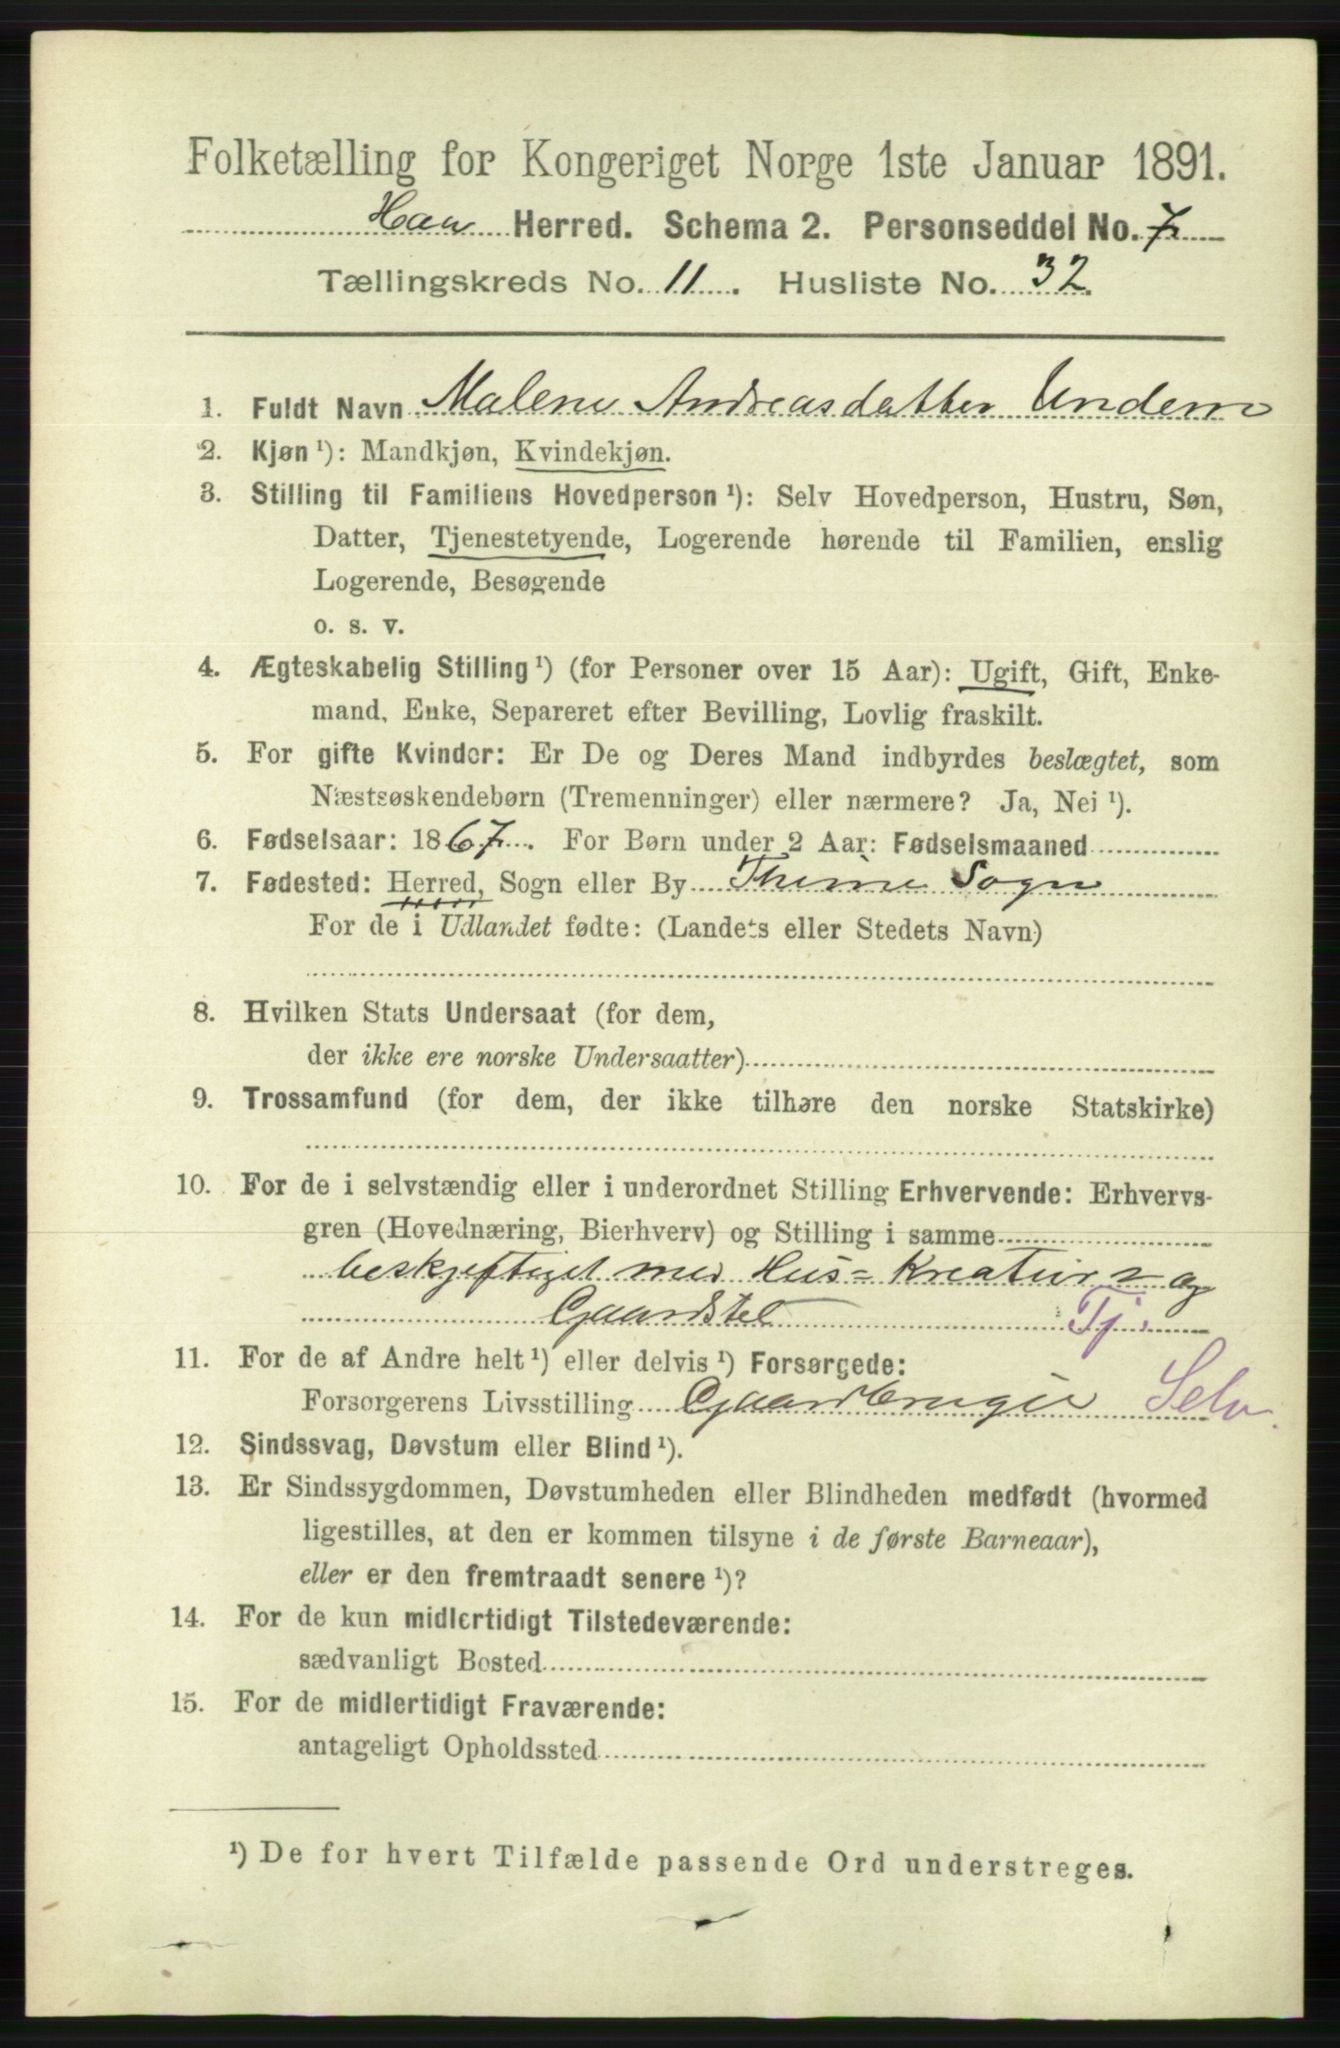 Folketælling for Kongeriget Norge 1ste Januar 1891.
Haa Herred. Schema 2. Personseddel No. 7
Tællingskreds No. 11. Husliste No. 32.
1. Fuldt Navn Malene Andreasdatter Undem
2. Kjøn ¹): Mandkjøn, Kvindekjøn.
3. Stilling til Familiens Hovedperson ¹): Selv Hovedperson, Hustru, Søn,
Datter, Tjenestetyende, Logerende hørende til Familien, enslig
Logerende, Besøgende
o. s. v.
4. Ægteskabelig Stilling ¹) (for Personer over 15 Aar): Ugift, Gift, Enke-
mand, Enke, Separeret efter Bevilling, Lovlig fraskilt.
5. For gifte Kvinder: Er De og Deres Mand indbyrdes beslægtet, som
Næstsøskendebørn (Tremenninger) eller nærmere? Ja, Nei ¹).
6. Fødselsaar: 1867. For Børn under 2 Aar: Fødselsmaaned
7. Fødested: Herred, Sogn eller By Thime Sogn
For de i Udlandet fødte: (Landets eller Stedets Navn)
8. Hvilken Stats Undersaat (for dem,
der ikke ere norske Undersaatter)
9. Trossamfund (for dem, der ikke tilhøre den norske Statskirke)
10. For de i selvstændig eller i underordnet Stilling Erhvervende: Erhvervs-
gren (Hovednæring, Bierhverv) og Stilling i samme
beskjeftiget med Hus= Kreatur= og
Gaardstel Tj.
11. For de af Andre helt ¹) eller delvis ¹) Forsørgede:
Forsørgerens Livsstilling Gaardbruger Selv.
12. Sindssvag, Døvstum eller Blind ¹).
13. Er Sindssygdommen, Døvstumheden eller Blindheden medfødt (hvormed
ligestilles, at den er kommen tilsyne i de første Barneaar),
eller er den fremtraadt senere ¹)?
14. For de kun midlertidigt Tilstedeværende:
sædvanligt Bosted
15. For de midlertidigt Fraværende:
antageligt Opholdssted
¹) De for hvert Tilfælde passende Ord understreges.